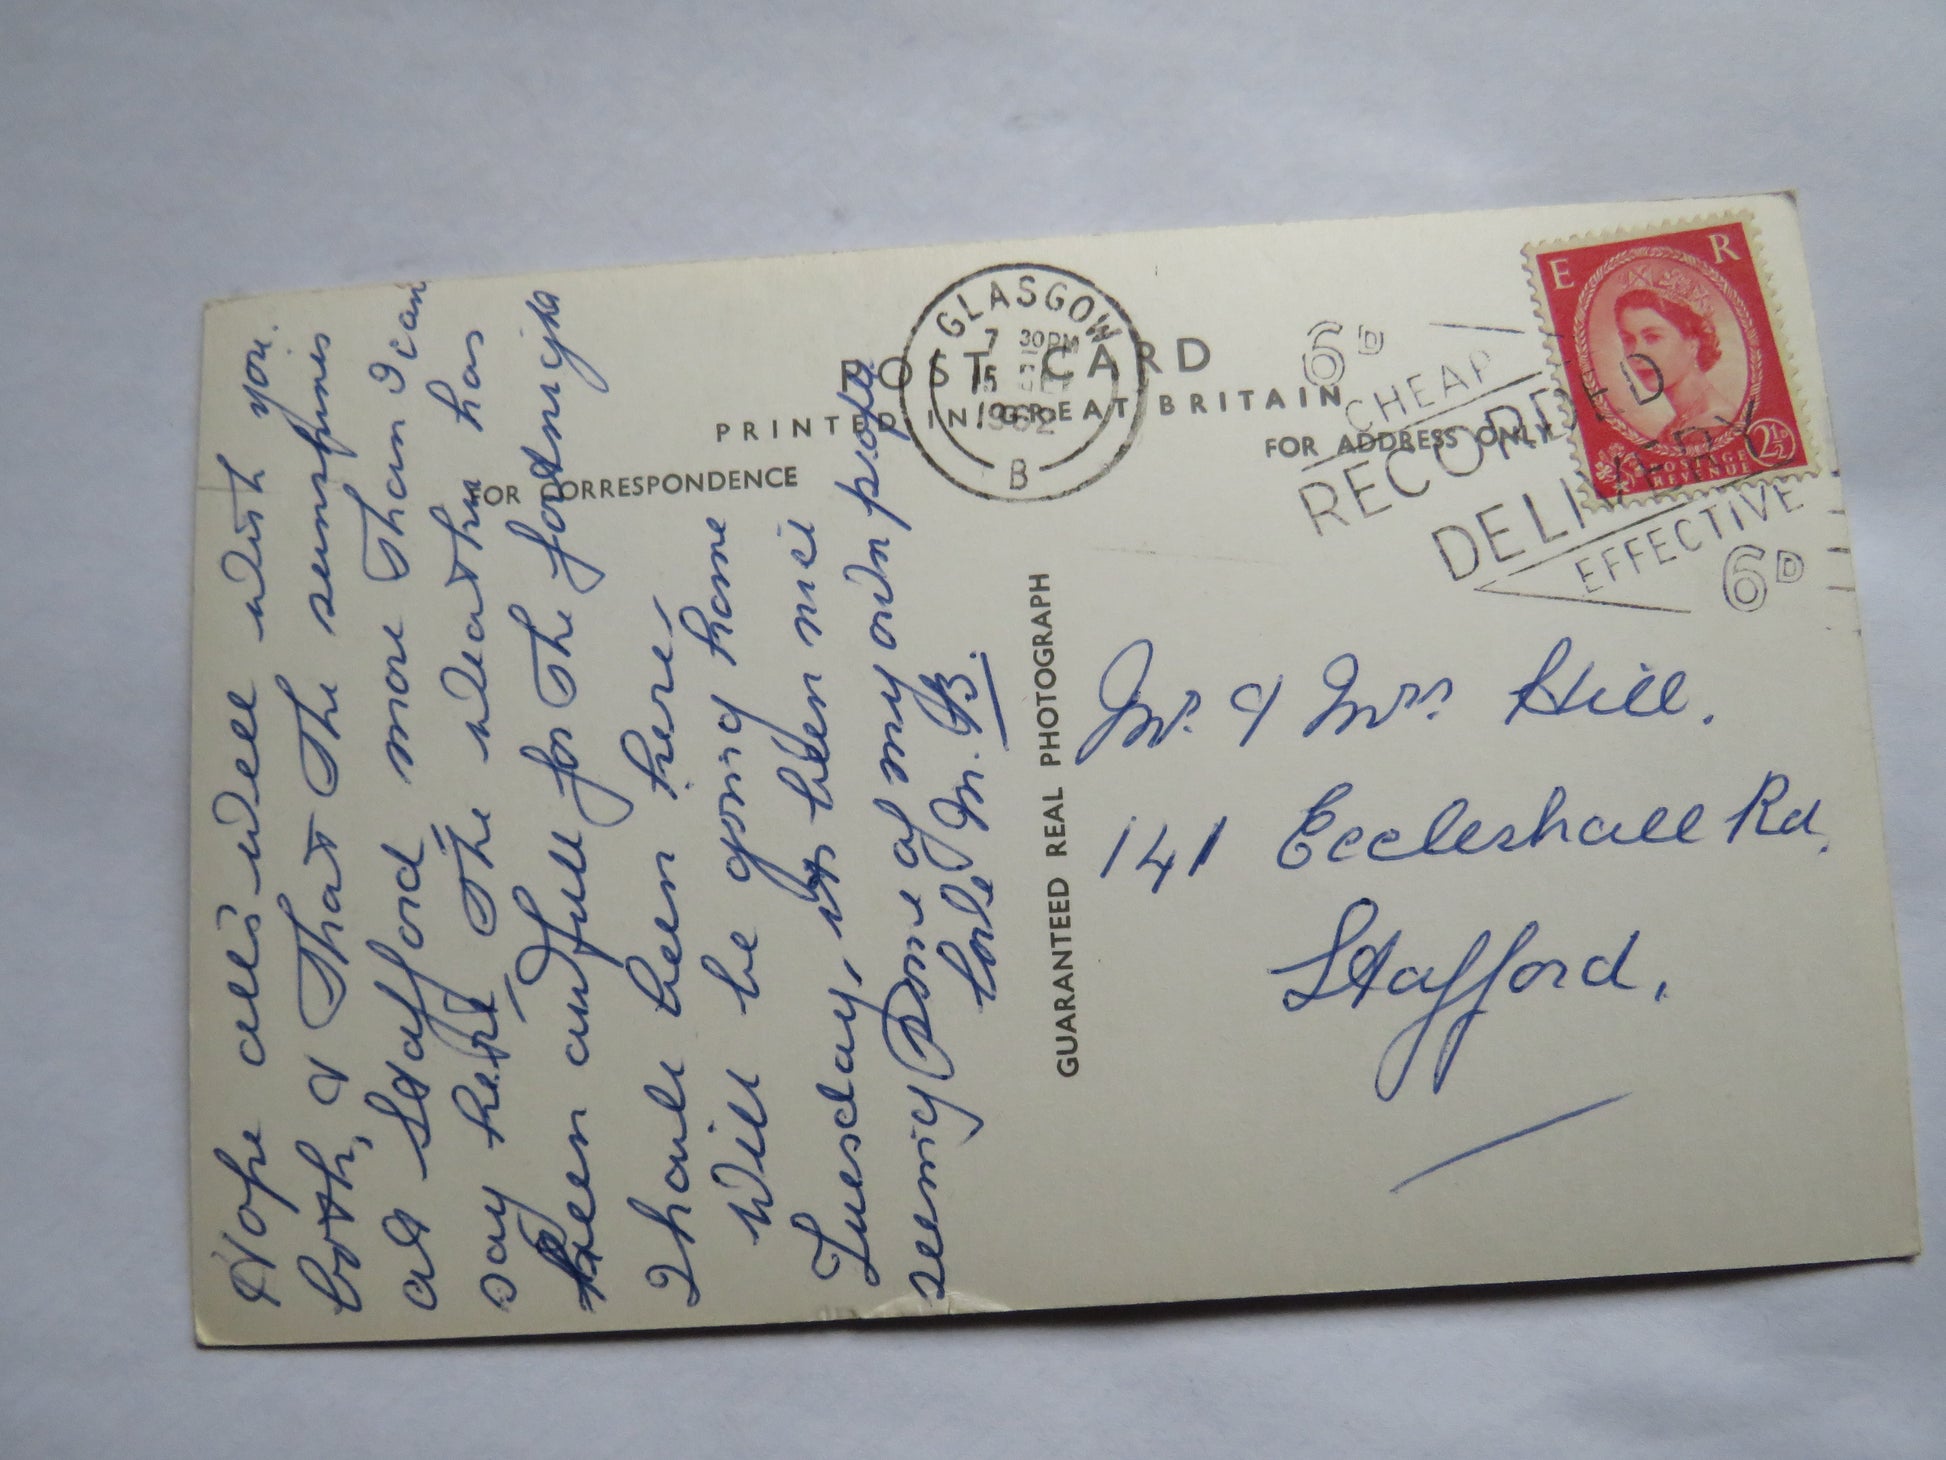 POST CARD
PRINTED IN GREAT BRITAIN
FOR CORRESPONDENCE
FOR ADDRESS ONLY
GUARANTEED REAL PHOTOGRAPH
GLASGOW
7 30PM
1962
B
6D
CHEAP
RECORDED
DELIVERY
EFFECTIVE
6D
E R
POSTAGE
REVENUE
2½D
Hope all's well with you
both, & that the sun shines
at Stafford more than I can
say here, the weather has
been awfull for the fortnight
I have been here,
Will be going home
Tuesday, its been nice
seeing some of my own people
love M. B.
Mr. & Mrs Hill.
141 Eccleshall Rd,
Stafford,